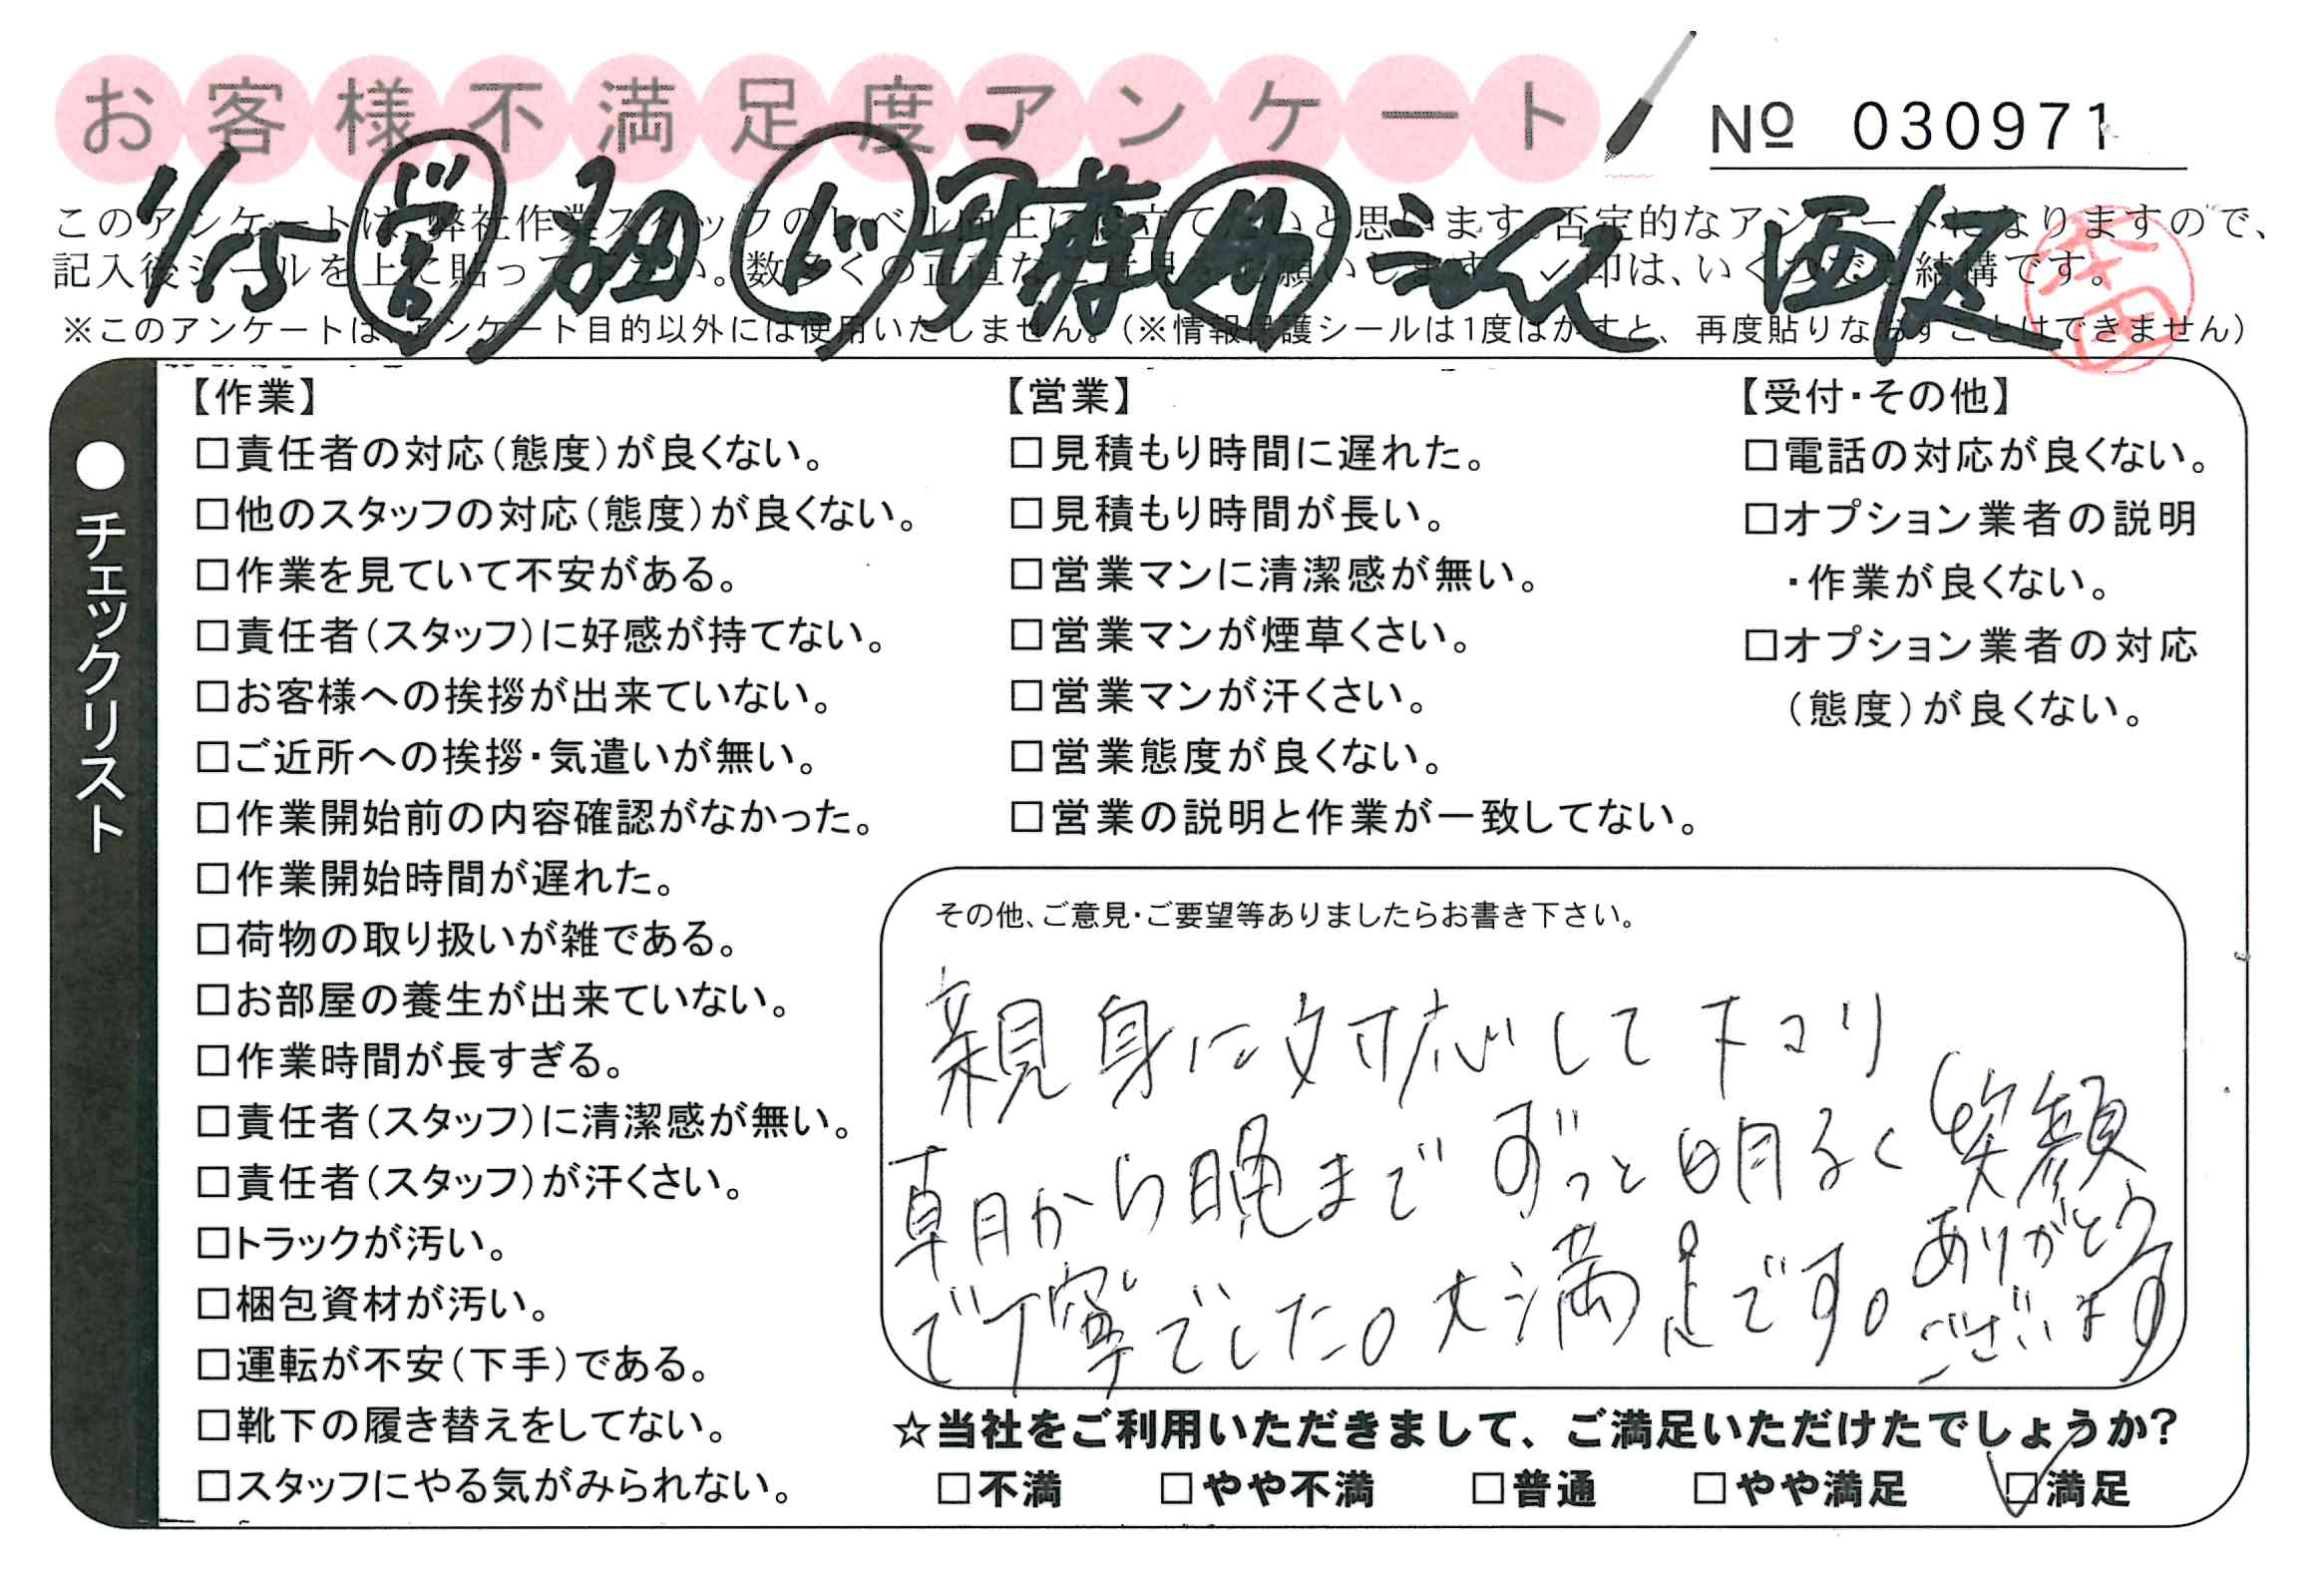 お客様不満足度アンケート
№ 030971
1/15
このアンケートは、弊社作業スタッフのレベル向上に役立てたいと思います。否定的なアンケートになりますので、
記入後シールを上に貼って下さい。数多くの正直なご意見をお願いします。✓印は、いくつでも結構です。
※このアンケートは、アンケート目的以外には使用いたしません。(※情報保護シールは1度はがすと、再度貼りなおすことはできません)
●チェックリスト
【作業】
□責任者の対応(態度)が良くない。
□他のスタッフの対応(態度)が良くない。
□作業を見ていて不安がある。
□責任者(スタッフ)に好感が持てない。
□お客様への挨拶が出来ていない。
□ご近所への挨拶・気遣いが無い。
□作業開始前の内容確認がなかった。
□作業開始時間が遅れた。
□荷物の取り扱いが雑である。
□お部屋の養生が出来ていない。
□作業時間が長すぎる。
□責任者(スタッフ)に清潔感が無い。
□責任者(スタッフ)が汗くさい。
□トラックが汚い。
□梱包資材が汚い。
□運転が不安(下手)である。
□靴下の履き替えをしてない。
□スタッフにやる気がみられない。
【営業】
□見積もり時間に遅れた。
□見積もり時間が長い。
□営業マンに清潔感が無い。
□営業マンが煙草くさい。
□営業マンが汗くさい。
□営業態度が良くない。
□営業の説明と作業が一致してない。
【受付・その他】
□電話の対応が良くない。
□オプション業者の説明
・作業が良くない。
□オプション業者の対応
(態度)が良くない。
その他、ご意見・ご要望等ありましたらお書き下さい。
親身に対応して下コリ
朝から晩までずっと明るく笑顔
で丁寧でした。大満足です。
ありがとう
ございます
☆当社をご利用いただきまして、ご満足いただけたでしょうか?
□不満 □やや不満 □普通 □やや満足 ☑満足